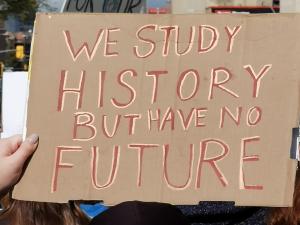 WE STUDY
HISTORY
BUT HAVE NO
FUTURE